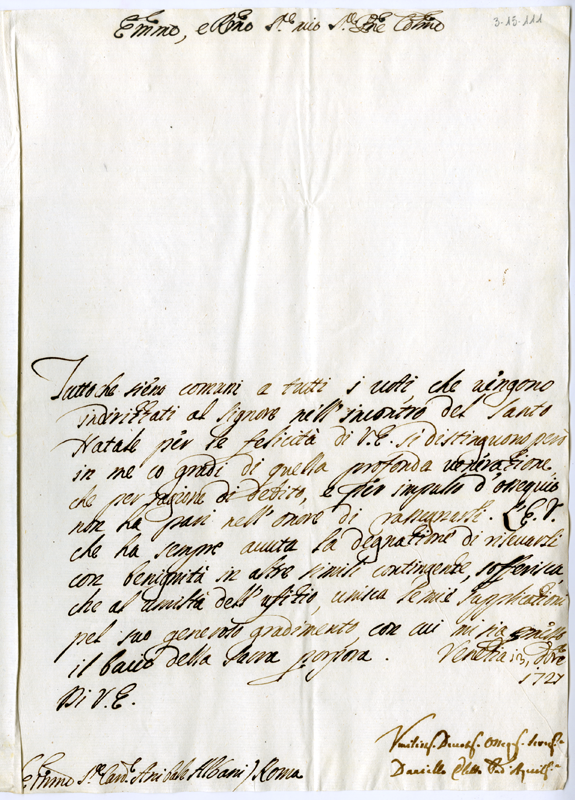 3-13-111
Emmo, e Rmo Sre mio Sre Pne Colmo
Tutto che sieno comuni a tutti i voti, che vengono
indirizzati al Signore nell'incontro del Santo
Natale per le felicità di V.E. si distinguono però
in me co gradi di quella profonda venerazione
che per ragione di debito, e per impulso d'ossequio
non ha pari nell'onore di rassegnarli. L'E.V.
che ha sempre avuta la degnatione di riceverli
con benignità in altre simili contingenze, sofferisca,
che al umiltà dell'ufizio, unisca le mie supplicationi
pel suo generoso gradimento, con cui mi sia
il bacio della sacra porpora. Venetia 13, Xbre
1727
Di V.E.
Daniello Pad Aquil
Emmo Sre Card. Anibale Albani / Roma